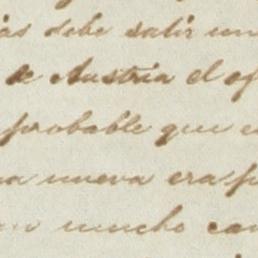 as debe salir un
de Austria el of
probable que e
a nueva era p
n mucho can